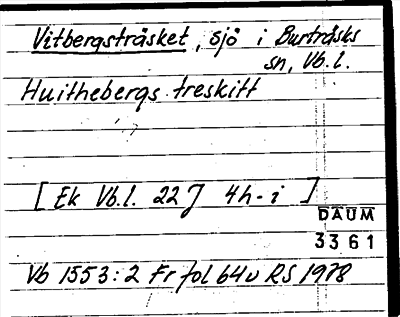 Vitbergsträsket, sjö i Burträsks
sn, Vb.l.
Huithebergs treskitt
[Ek Vb.l. 22J 4h-i ]
DAUM
3361
Vb 1553:2 Fr fol 64v RS 1978